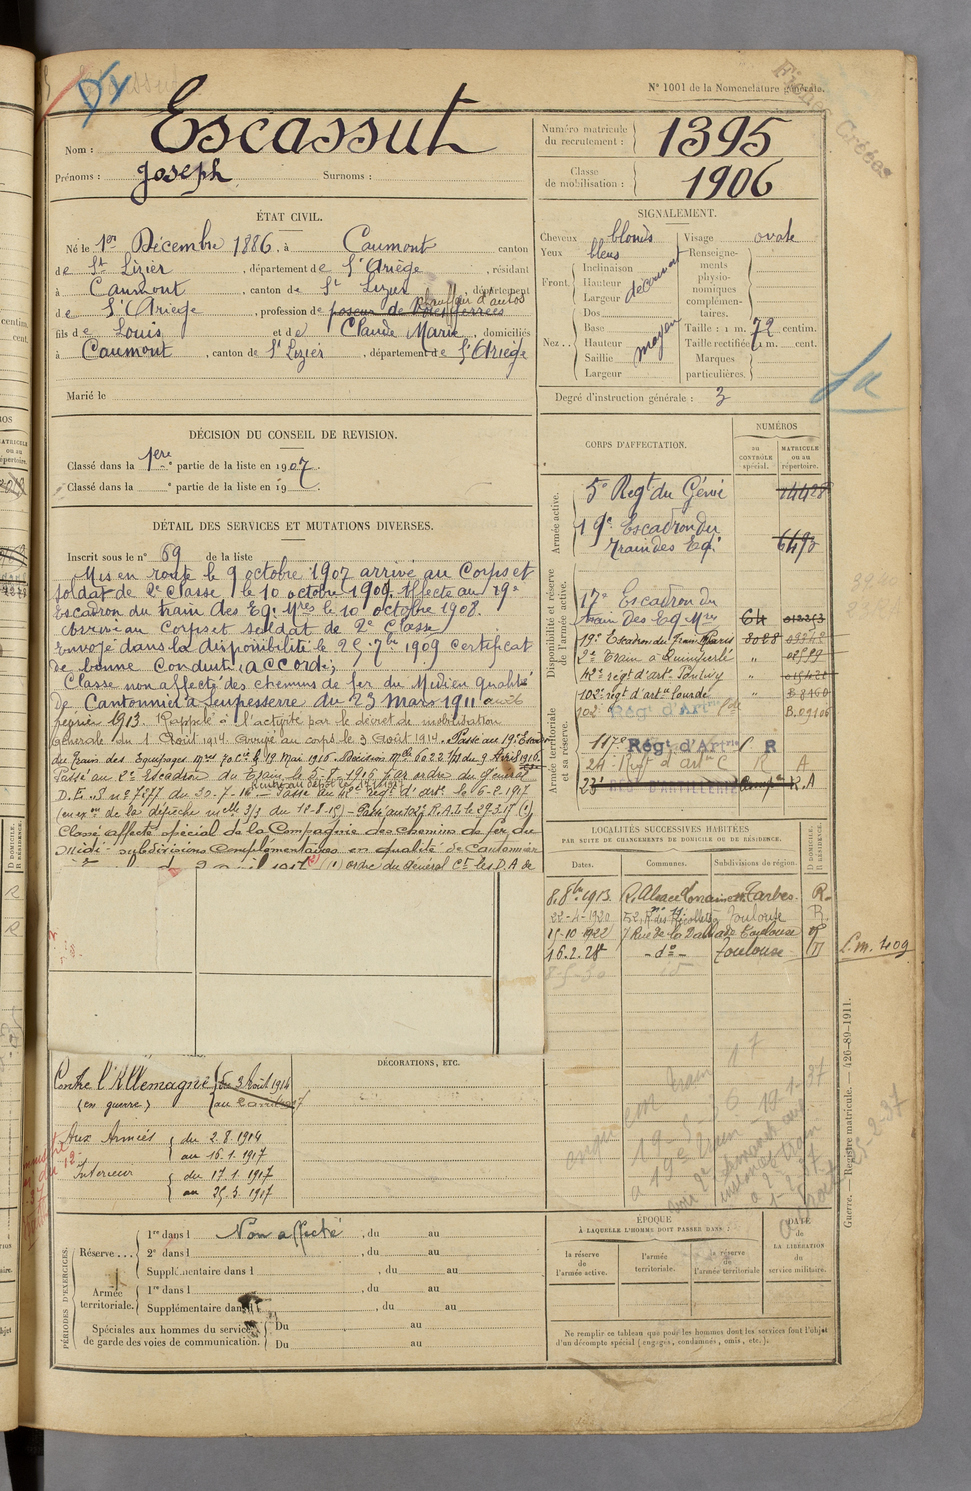 N° 1001 de la Nomenclature générale.
Nom : Escassut
Prénoms : Joseph Surnoms :
Numéro matricule du recrutement : 1395
Classe de mobilisation : 1906
ÉTAT CIVIL.
Né le 1er Décembre 1886, à Caumont canton
de St Lizier, département de l'Ariège, résidant
à Caumont, canton de St Lizier, département
de l'Ariège, profession de poseur de voies ferrées
fils de Louis et de Claude Marie, domiciliés
à Caumont, canton de St Lizier, département de l'Ariège
Marié le
SIGNALEMENT.
Cheveux blonds Visage ovale
Yeux bleus
Front. Inclinaison
Hauteur
Largeur
Nez.. Dos
Base
Hauteur
Saillie
Largeur
moyen
Renseignements physionomiques complémentaires.
Taille : 1 m. 72 centim.
Taille rectifiée : 1 m. cent.
Marques particulières.
Degré d'instruction générale : 3
DÉCISION DU CONSEIL DE REVISION.
Classé dans la 1ere partie de la liste en 1907.
Classé dans la e partie de la liste en 19
CORPS D'AFFECTATION.
NUMÉROS
au CONTRÔLE spécial.
MATRICULE ou au répertoire.
Armée active.
5e Régt du Génie
19e Escadron du
Train des Eq.
Disponibilité et réserve de l'armée active.
17e Escadron du
train des Eq Mres 64
19e Escadron du Train Paris 3088
2e Train à Quimperlé "
102e régt d'artie lourde " B.8160
102e Régt d'Artie B.09106
Armée territoriale et sa réserve.
117e Régt d'Artie R
24e Régt d'artie C R A
23e REGt D'ARTILLERIE R.A
DÉTAIL DES SERVICES ET MUTATIONS DIVERSES.
Inscrit sous le n° 69 de la liste
Mis en route le 9 octobre 1907 arrivé au Corps et
soldat de 2e Classe le 10 octobre 1907. Affecté au 19e
Escadron du train des Eq. Mres le 10 octobre 1908.
Arrivé au Corps et soldat de 2e Classe
Envoyé dans la disponibilité le 25 7bre 1909 certificat
de bonne Conduite accordé;
Classé non affecté des chemins de fer du Midi en qualité
de Cantonnier à Lespesserre du 23 Mars 1911 au 26
février 1913. Rappelé à l'activité par le décret de mobilisation
générale du 1 Août 1914. Arrivé au corps le 3 Août 1914. Passé au 19e Escadron
du Train des Equipages Mres 70 cie le 19 Mai 1916. Décision Melle 6022 du 9 Avril 1916.
Passé au 2e Escadron du Train le 5-8-1916 par ordre du Général
D.E. n° 7277 du 30-7-16. Passé au 42e régt d'artie le 6-2-1917
(en exon de la dépêche melle 3/3 du 18-8-15) - Passé au 102e R.A.L le 29.3.17 (1)
Classé affecté spécial de la Compagnie des chemins de fer du
Midi - subdivisions complémentaires en qualité de cantonnier
(1) ordre du Général Ct les D.A de
LOCALITÉS SUCCESSIVES HABITÉES
PAR SUITE DE CHANGEMENTS DE DOMICILE OU DE RÉSIDENCE.
Dates. Communes. Subdivisions de région. D DOMICILE. R RÉSIDENCE.
8.8bre 1913 R. Alsace Lorraine Tarbes. R.
22-4-1920 52, R. des Récollets Toulouse R
15-10-1922 7 Rue de la Toulouse
16.2.28 - do - Toulouse D
S.m. 409
Contre l'Allemagne du 3 Août 1914
(en guerre) au
Aux Armées du 2.8.1914
au 16.1.1917
Intérieur du 17.1.1917
au 25.3.1917
DÉCORATIONS, ETC.
PÉRIODES D'EXERCICES.
Réserve... 1re dans l Non affecté, du au
2e dans l, du au
Supplémentaire dans l, du au
Armée territoriale. 1re dans l, du au
Supplémentaire dans l, du au
Spéciales aux hommes du service de garde des voies de communication. Du au
Du au
ÉPOQUE À LAQUELLE L'HOMME DOIT PASSER DANS :
la réserve de l'armée active.
l'armée territoriale.
la réserve de l'armée territoriale
DATE de LA LIBÉRATION du service militaire.
Ne remplir ce tableau que pour les hommes dont les services font l'objet d'un décompte spécial (engagés, condamnés, omis, etc.).
Guerre. — Registre matricule. — 426-89-1911.